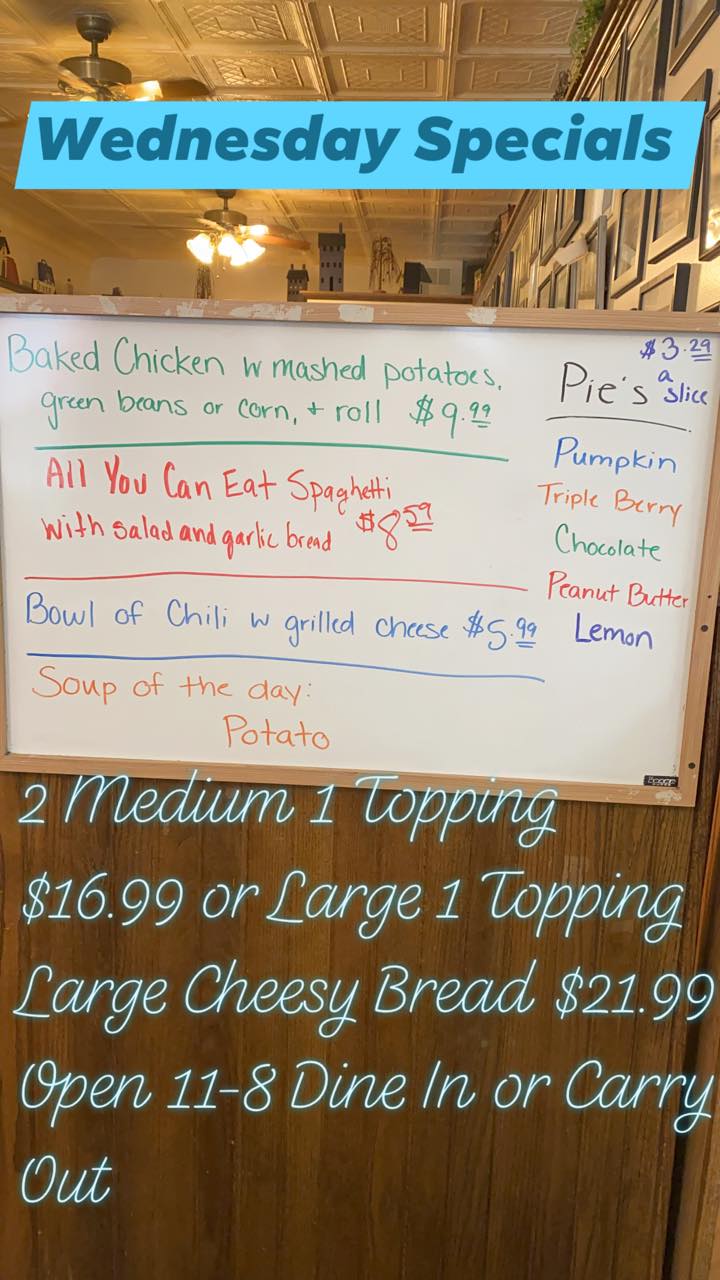 Wednesday Specials
Baked Chicken w mashed potatoes,
green beans or corn, + roll $9.99
All You Can Eat Spaghetti
with salad and garlic bread $8.59
Bowl of Chili w grilled cheese $5.99
Soup of the day:
Potato
$3.29
Pie's a slice
Pumpkin
Triple Berry
Chocolate
Peanut Butter
Lemon
2 Medium 1 Topping
$16.99 or Large 1 Topping
Large Cheesy Bread $21.99
Open 11-8 Dine In or Carry
Out